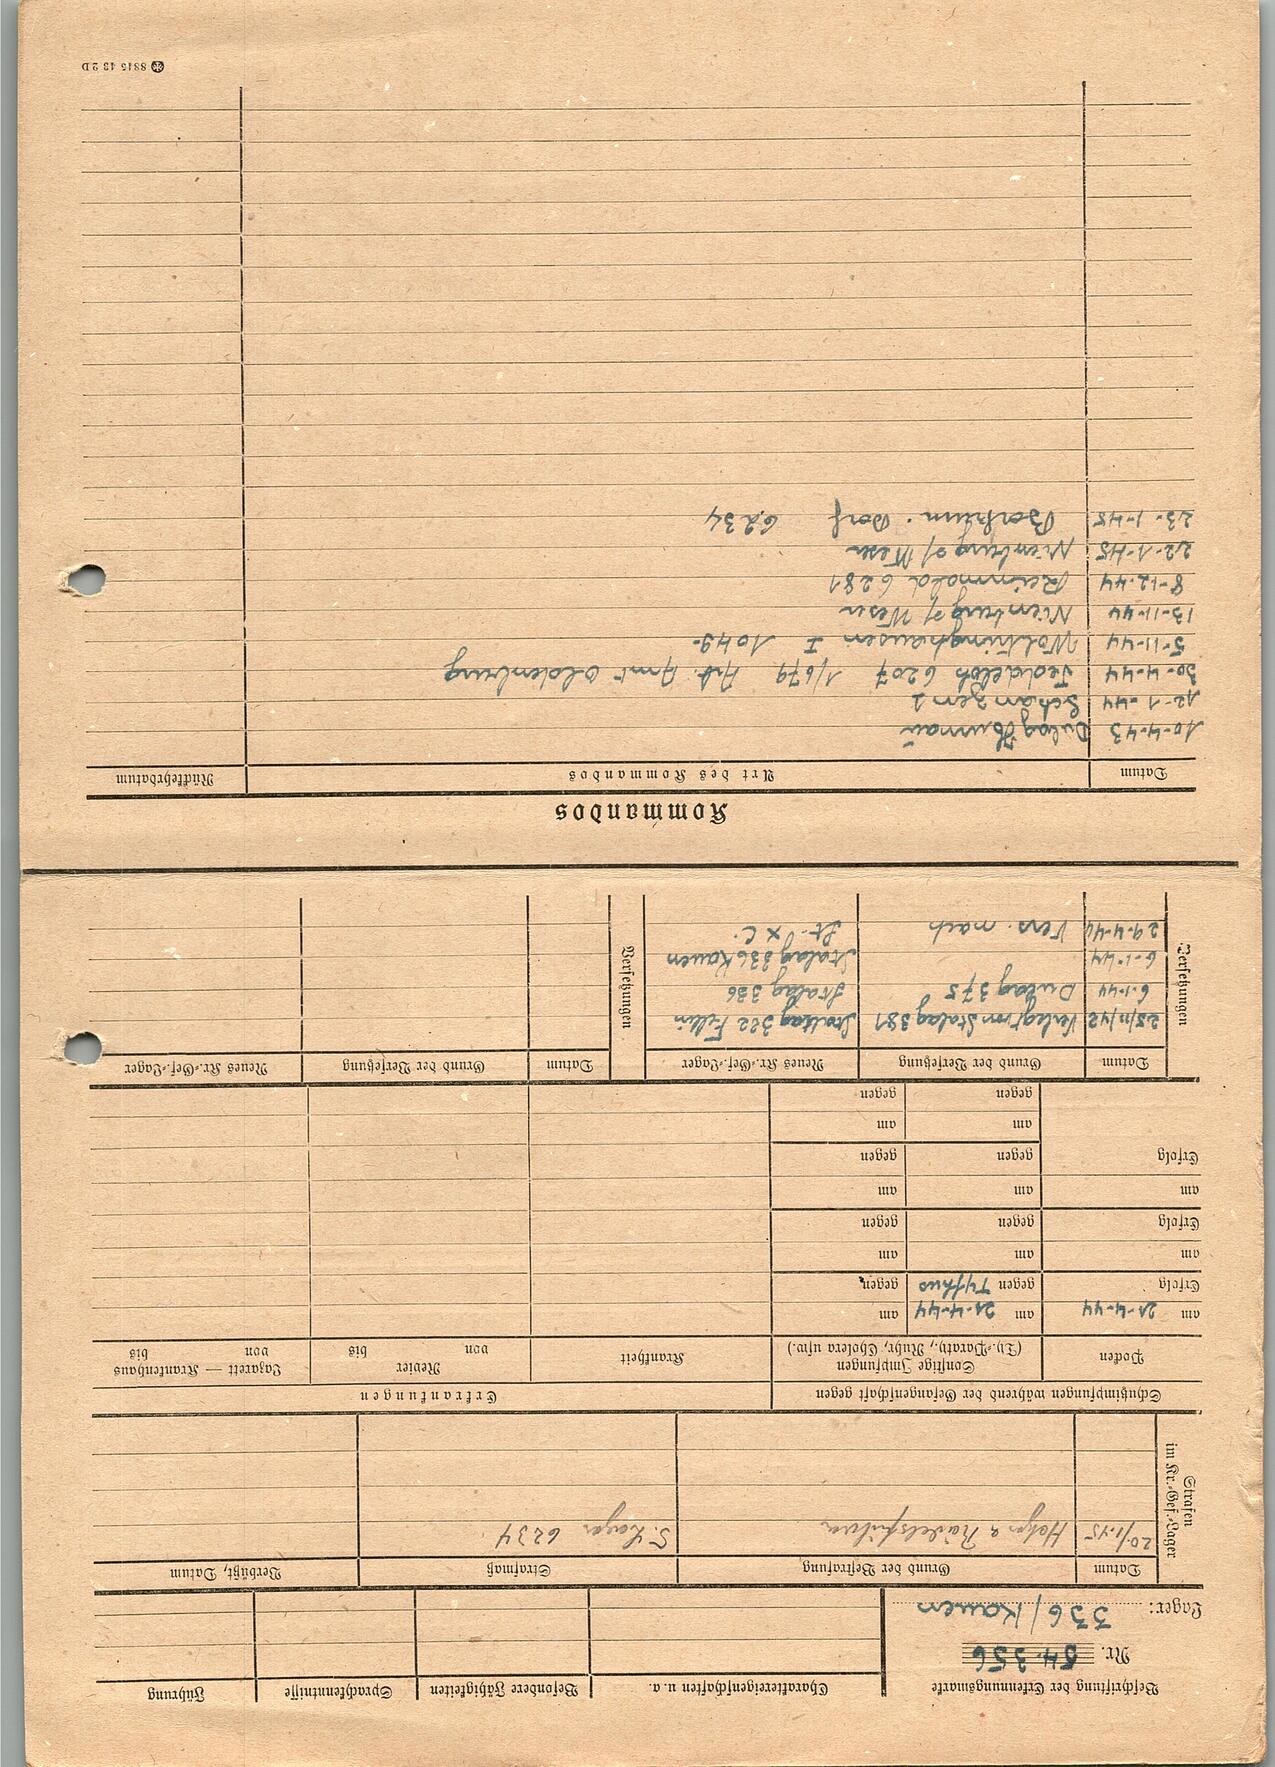 Beschriftung der Erkennungsmarke
Nr. 54356
Lager: 336/Kauen
Charaktereigenschaften u. a.
Besondere Fähigkeiten
Sprachkenntnisse
Führung
Strafen im Kr.-Gef.-Lager
Datum
Grund der Bestrafung
Strafmaß
Verbüßt, Datum
20/1.45
6234
Schutzimpfungen während der Gefangenschaft gegen
Erkrankungen
Pocken
Sonstige Impfungen
(Ty.-Paraty., Ruhr, Cholera usw.)
Krankheit
Revier
von bis
Lazarett — Krankenhaus
von bis
am 21-4-44 am 21-4-44 am
Erfolg gegen Typhus gegen
am am am
Erfolg gegen gegen
am am am
Erfolg gegen gegen
am am
gegen gegen
Versetzungen
Datum
Grund der Versetzung
Neues Kr.-Gef.-Lager
Versetzungen
Datum
Grund der Versetzung
Neues Kr.-Gef.-Lager
25/11/42 Verlegt von Stalag 381 Stalag 322 Fellin
6-1-44 Dulag 375 Stalag 336
6-1-44 Stalag 336 Kauen
29-4-44 Vers. nach St. X C.
Kommandos
Datum
Art des Kommandos
Rückkehrdatum
10-4-43 Dulag
12-1-44 Schanzen 2
30-4-44 Jeddeloh 6207 1/679 Arb. Amt Oldenburg
5-11-44 Woltringhausen I 1049-
13-11-44 Nienburg a/ Weser
8-12-44 6281
22-1-45 Nienburg a/ Weser
23-1-45 Borkum. Dorf 6234
8815 43 2D